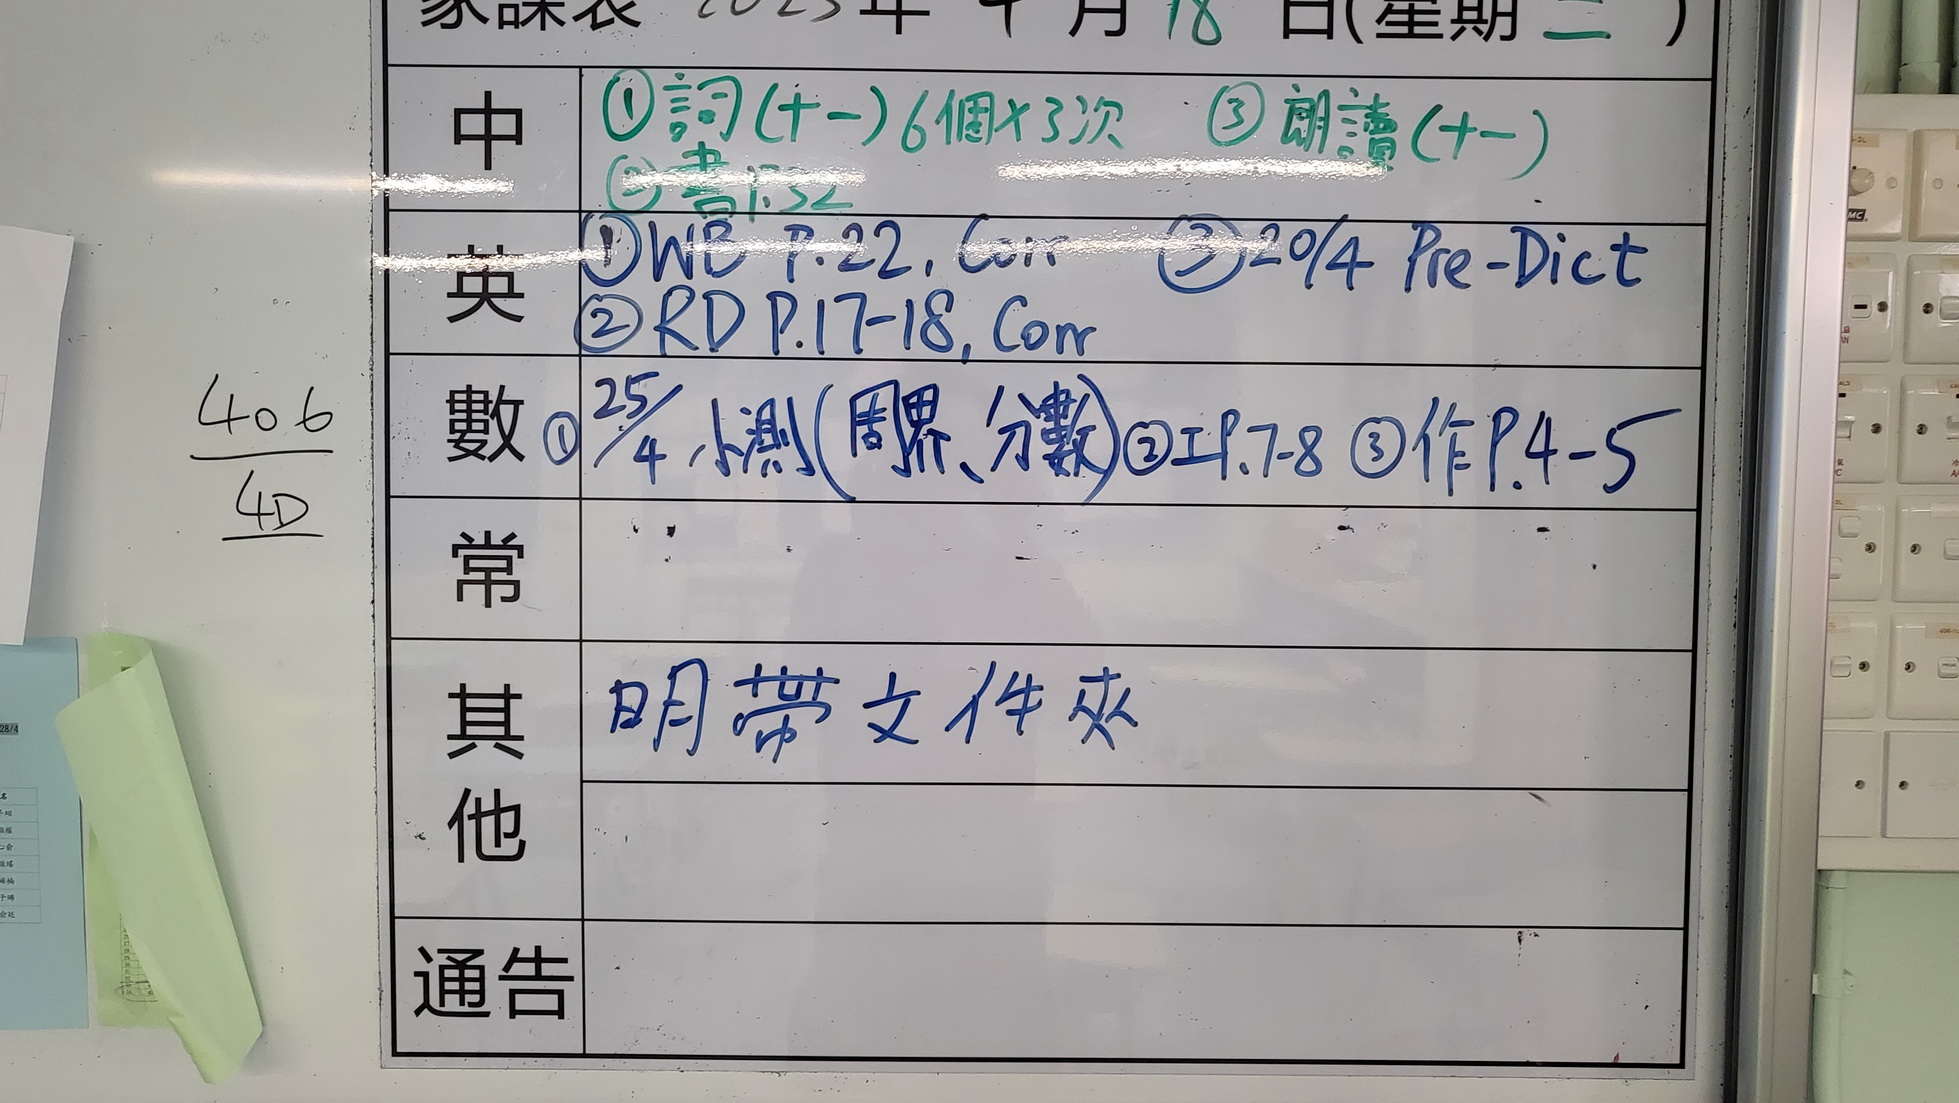 家課表 2023年4月18日(星期二)
中
①詞(十一)6個×3次 ③朗讀(十一)
②書P.32
英
①WB P.22, Corr ③20/4 Pre-Dict
②RD P.17-18, Corr
數
①25/4小測(周界、分數)②工P.7-8 ③作P.4-5
常
其他
明帶文件夾
通告
406
4D
28/4